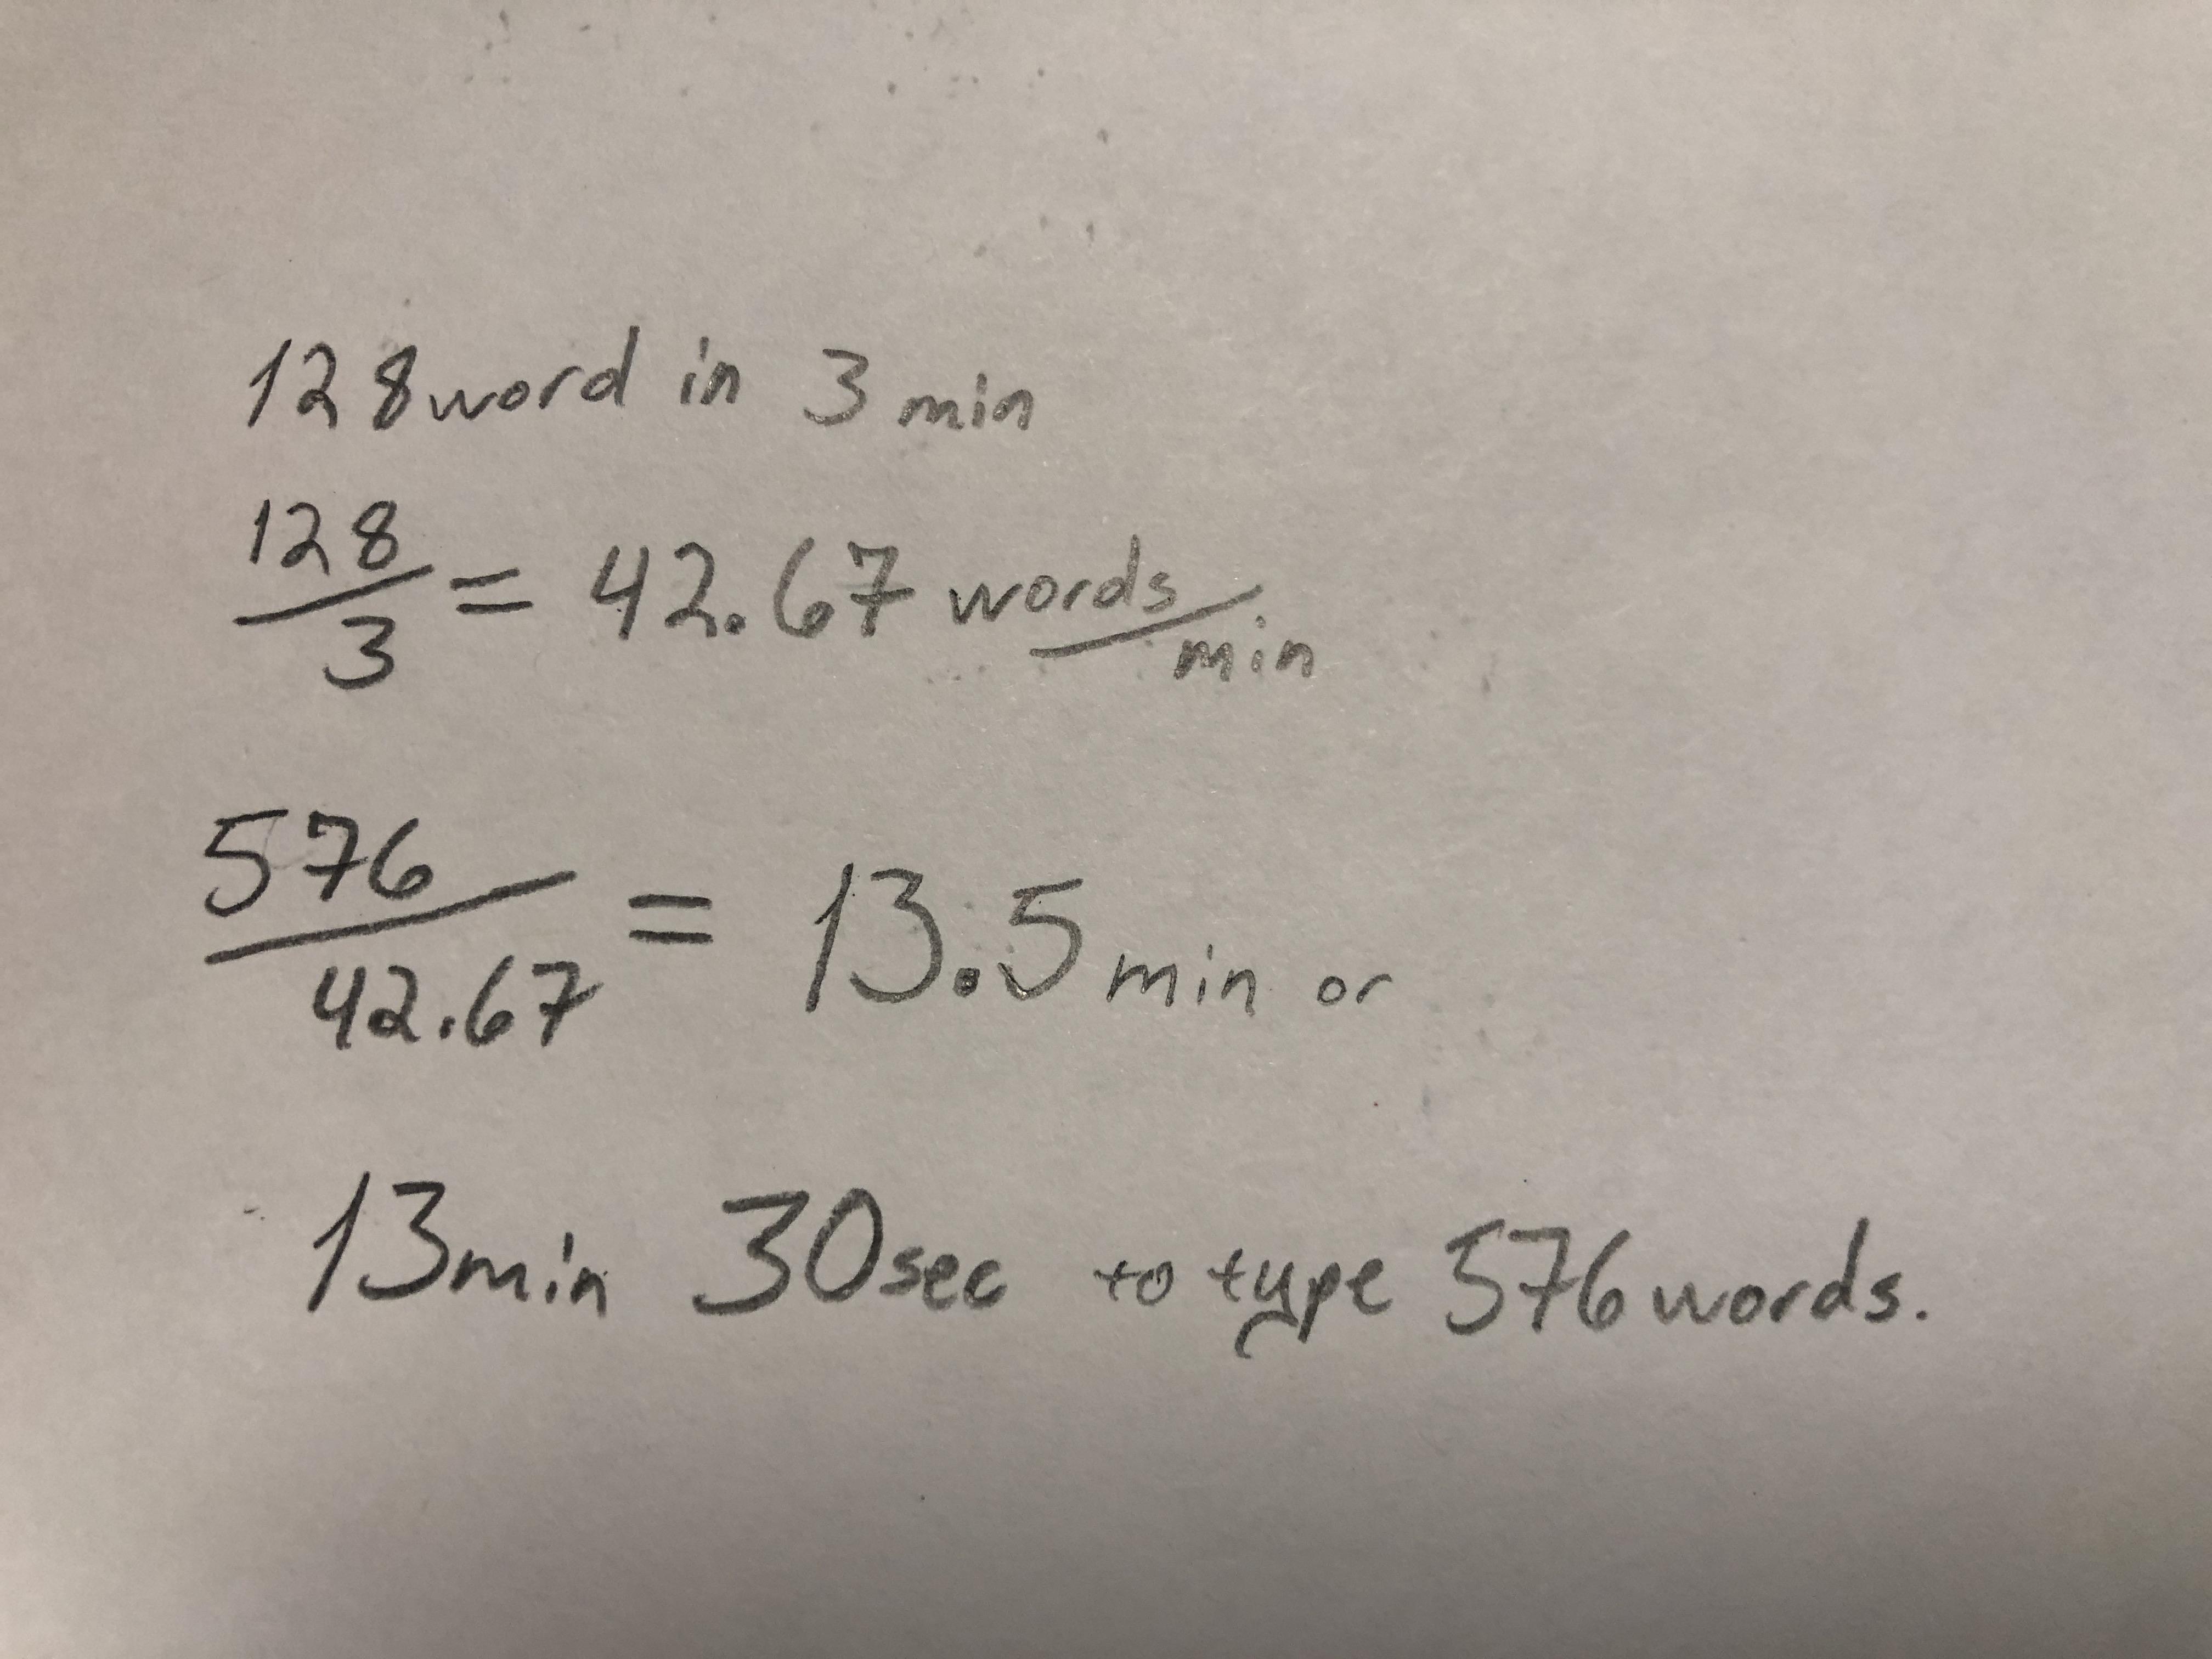 128 word in 3 min
128/3 = 42.67 words/min
576/42.67 = 13.5 min or
13 min 30 sec to type 576 words.